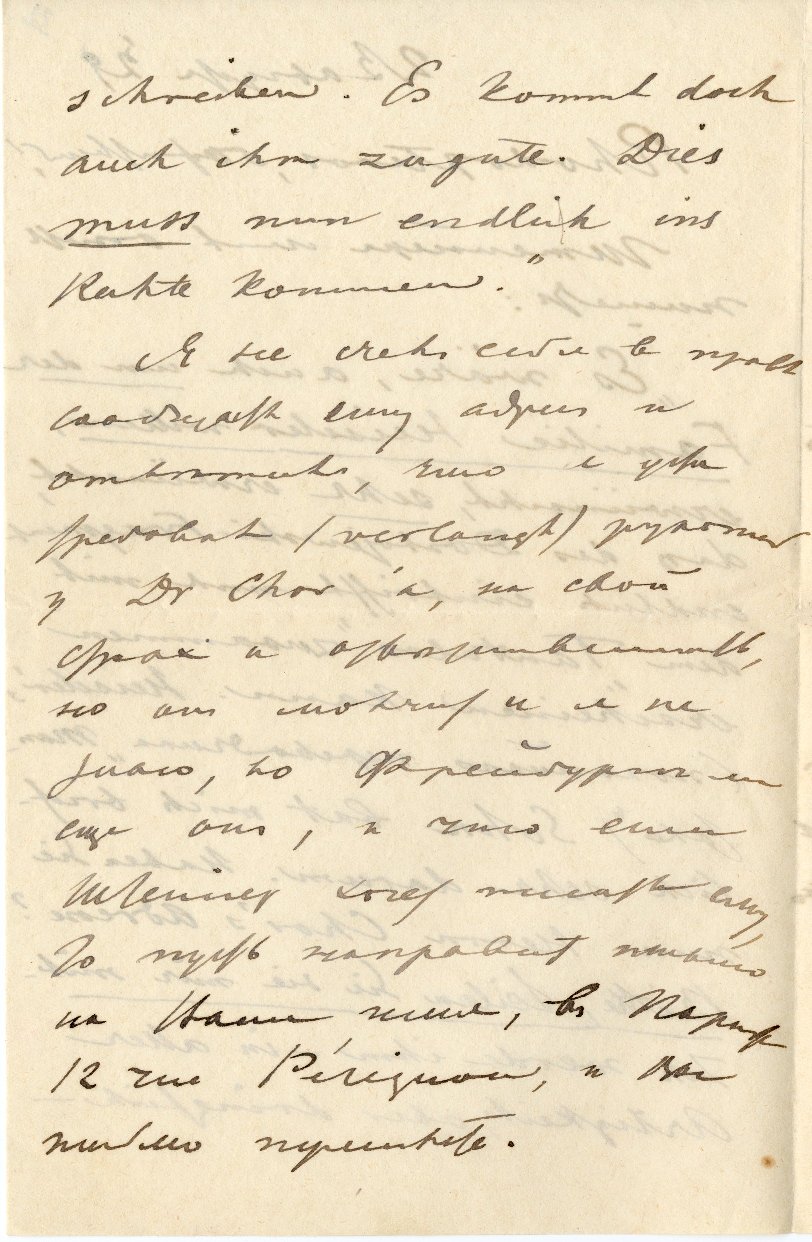 schreiben. Es kommt doch
auch ihm zugute. Dies
muss nun endlich ins
Rechte kommen."
Я не счелъ себя в праве
сообщать ему адрес и
ответить, что я
требовать (verlangt) рукопись
у Dr Chor'a, на свой
страх и ответственность,
но они и я не
знаю, во Фрейбурге ли
еще они, и что если
Шлейцер хочет писать ему,
то пусть направит письмо
на Ваше имя, въ Париж
12 rue Pérignon, и Вы
письмо перешлете.